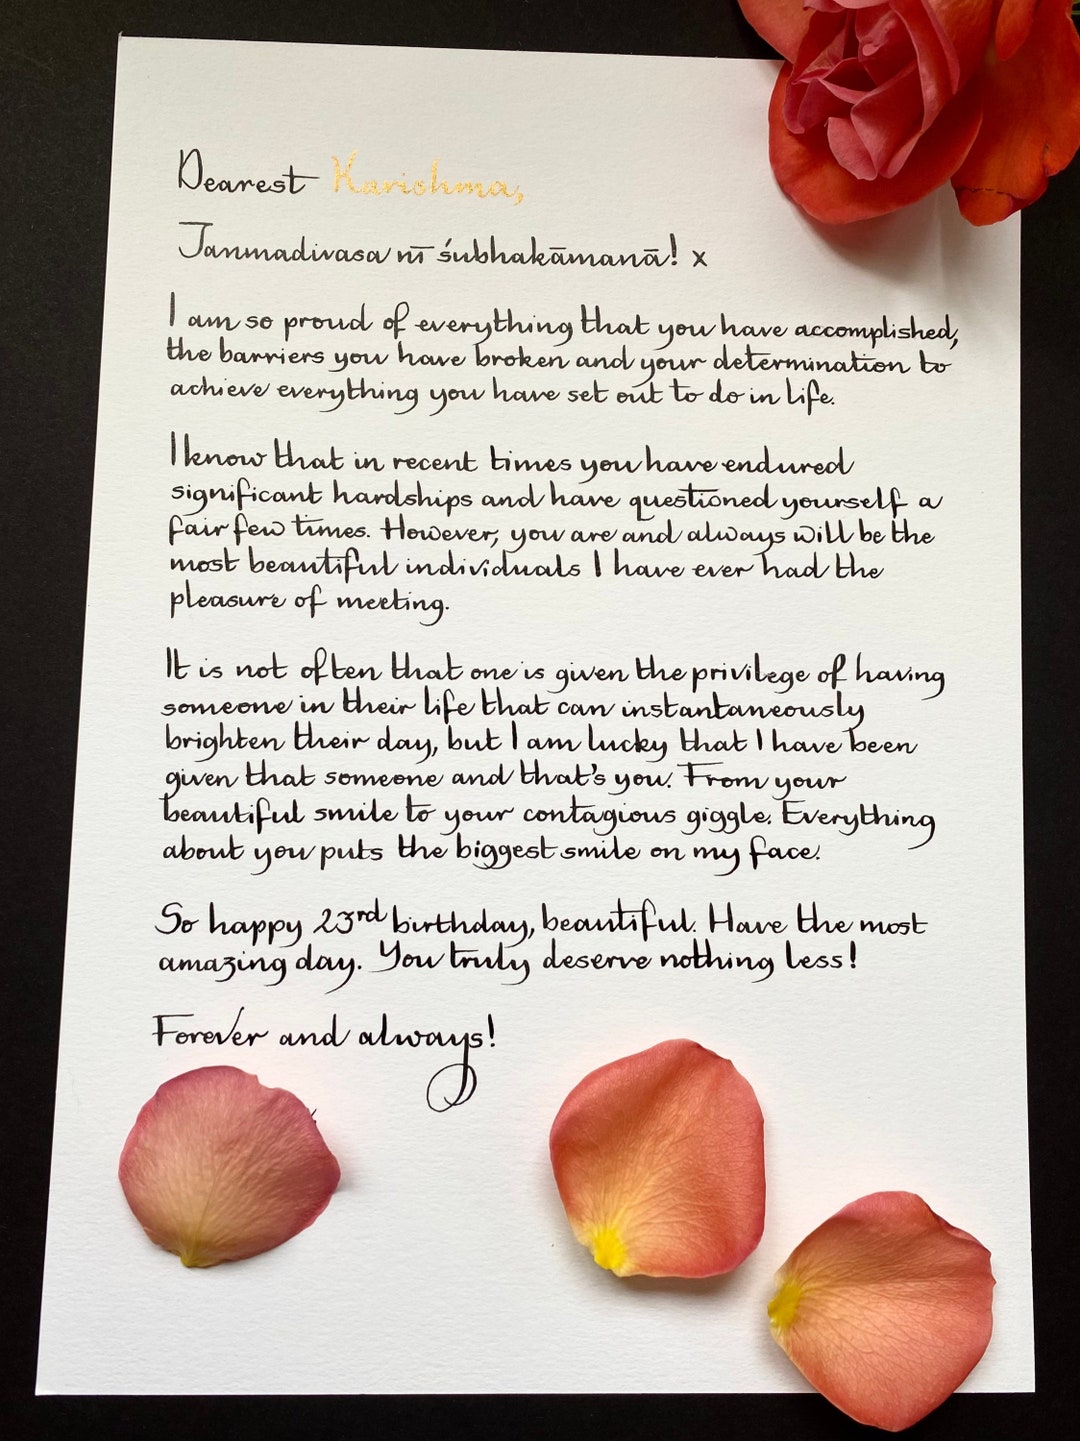 Dearest Karishma,
Janmadivasa nī śubhakāmanā! x
I am so proud of everything that you have accomplished,
the barriers you have broken and your determination to
achieve everything you have set out to do in life.
I know that in recent times you have endured
significant hardships and have questioned yourself a
fair few times. However, you are and always will be the
most beautiful individuals I have ever had the
pleasure of meeting.
It is not often that one is given the privilege of having
someone in their life that can instantaneously
brighten their day, but I am lucky that I have been
given that someone and that's you. From your
beautiful smile to your contagious giggle. Everything
about you puts the biggest smile on my face.
So happy 23rd birthday, beautiful. Have the most
amazing day. You truly deserve nothing less!
Forever and always!